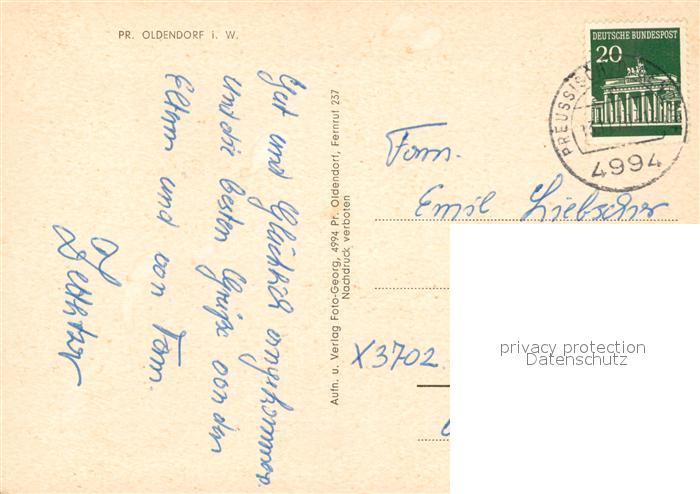 PR. OLDENDORF i. W.
Gut und Glücklich angekommen
und die besten Grüße von den
Eltern und von Tom.
Aufn. u. Verlag Foto-Georg, 4994 Pr. Oldendorf, Fernruf 237
Nachdruck verboten
DEUTSCHE BUNDESPOST
20
PREUSSISCH
4994
Fam.
Emil Liebscher
X3702
privacy protection
Datenschutz